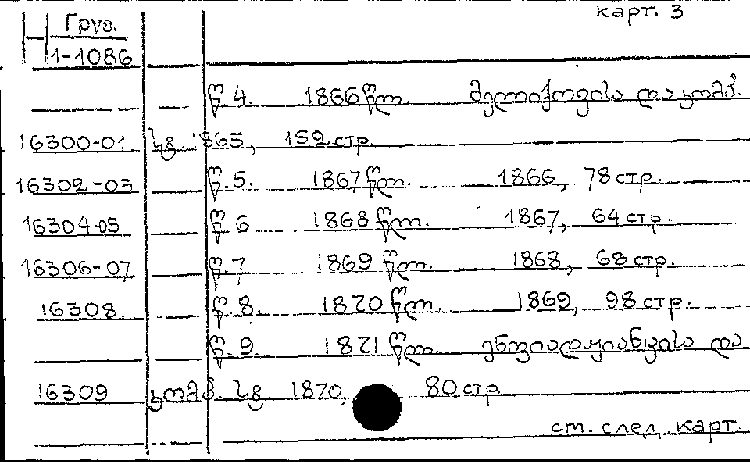 карт. 3
Груз.
1-1086
წ. 4. 1866 წლ. მელიქოვისა და კომპ.
16300-01 სტ. 1865, 152 стр.
16302-03 წ. 5. 1867 წლ. 1866, 78 стр.
16304-05 წ. 6 1868 წლ. 1867, 64 стр.
16306-07 წ. 7 1869 წლ. 1868, 68 стр.
16308 წ. 8. 1870 წლ. 1869, 98 стр.
წ. 9. 1871 წლ. ენფიაჯიანცისა და
16309 კომპ. სტ. 1870, 80 стр
ст. след. карт.